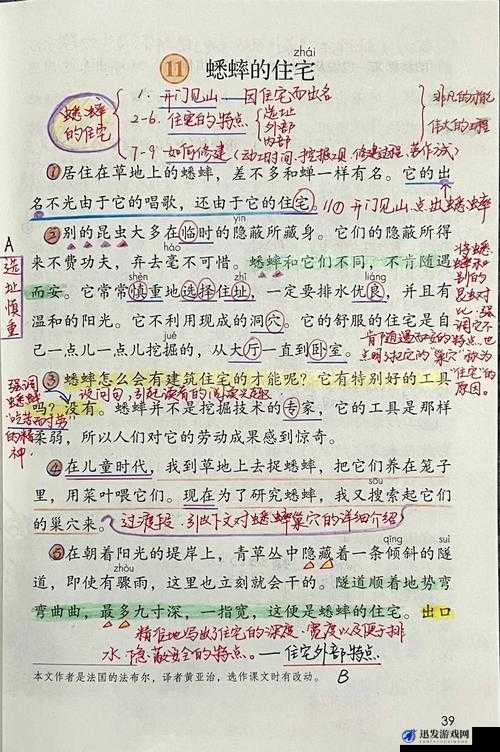 zhái
11 蟋蟀的住宅
蟋蟀的住宅
1. 开门见山——因住宅而出名
2-6. 住宅的特点 选址 外部 内部
7-9 如何修建(动工时间、挖掘工具、修建过程、劳作方式)
非凡的才能
伟大的工程
①居住在草地上的蟋蟀，差不多和蝉一样有名。它的出
名不光由于它的唱歌，还由于它的住宅。
开门见山,点出蟋蟀
yǐn
②别的昆虫大多在临时的隐蔽所藏身。它们的隐蔽所得
háo
来不费功夫，弃去毫不可惜。蟋蟀和它们不同，不肯随遇
shèn liáng
而安。它常常慎重地选择住址，一定要排水优良，并且有
温和的阳光。它不利用现成的洞穴。它的舒服的住宅是自
jué
己一点儿一点儿挖掘的，从大厅一直到卧室。
A
选址慎重
将蟋蟀和别的昆虫对比,强调它不
肯随遇而安的特点,也
点明了把它的“巢穴”称为
“住宅”的
原因。
③蟋蟀怎么会有建筑住宅的才能呢？它有特别好的工具
设问句,引起读者的阅读兴趣
吗？没有。蟋蟀并不是挖掘技术的专家，它的工具是那样
柔弱，所以人们对它的劳动成果感到惊奇。
强调
蟋蟀
“吃苦耐劳”
的精
神.
④在儿童时代，我到草地上去捉蟋蟀，把它们养在笼子
sōu
里，用菜叶喂它们。现在为了研究蟋蟀，我又搜索起它们
的巢穴来。
过渡段,引出下文对蟋蟀巢穴的详细介绍
qīng suì
⑤在朝着阳光的堤岸上，青草丛中隐藏着一条倾斜的隧
zhòu
道，即使有骤雨，这里也立刻就会干的。隧道顺着地势弯
弯曲曲，最多九寸深，一指宽，这便是蟋蟀的住宅。出口
精准地写出了住宅的深度、宽度以及便于排
水、隐蔽安全的特点。——住宅外部特点
B
本文作者是法国的法布尔，译者黄亚治，选作课文时有改动。
39
迅发游戏网